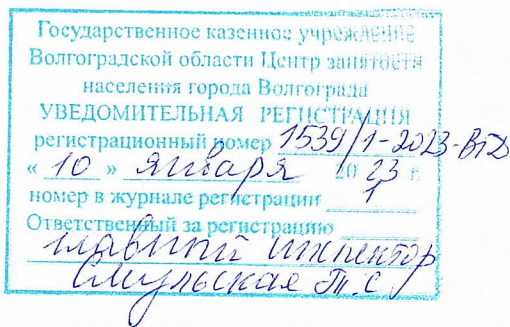 Государственное казенное учреждение
Волгоградской области Центр занятости
населения города Волгограда
УВЕДОМИТЕЛЬНАЯ РЕГИСТРАЦИЯ
регистрационный номер 1539/1-2023-ВГД
« 10 » января 20 23 г.
номер в журнале регистрации 1
Ответственный за регистрацию
главный инспектор
Смульская Т.С